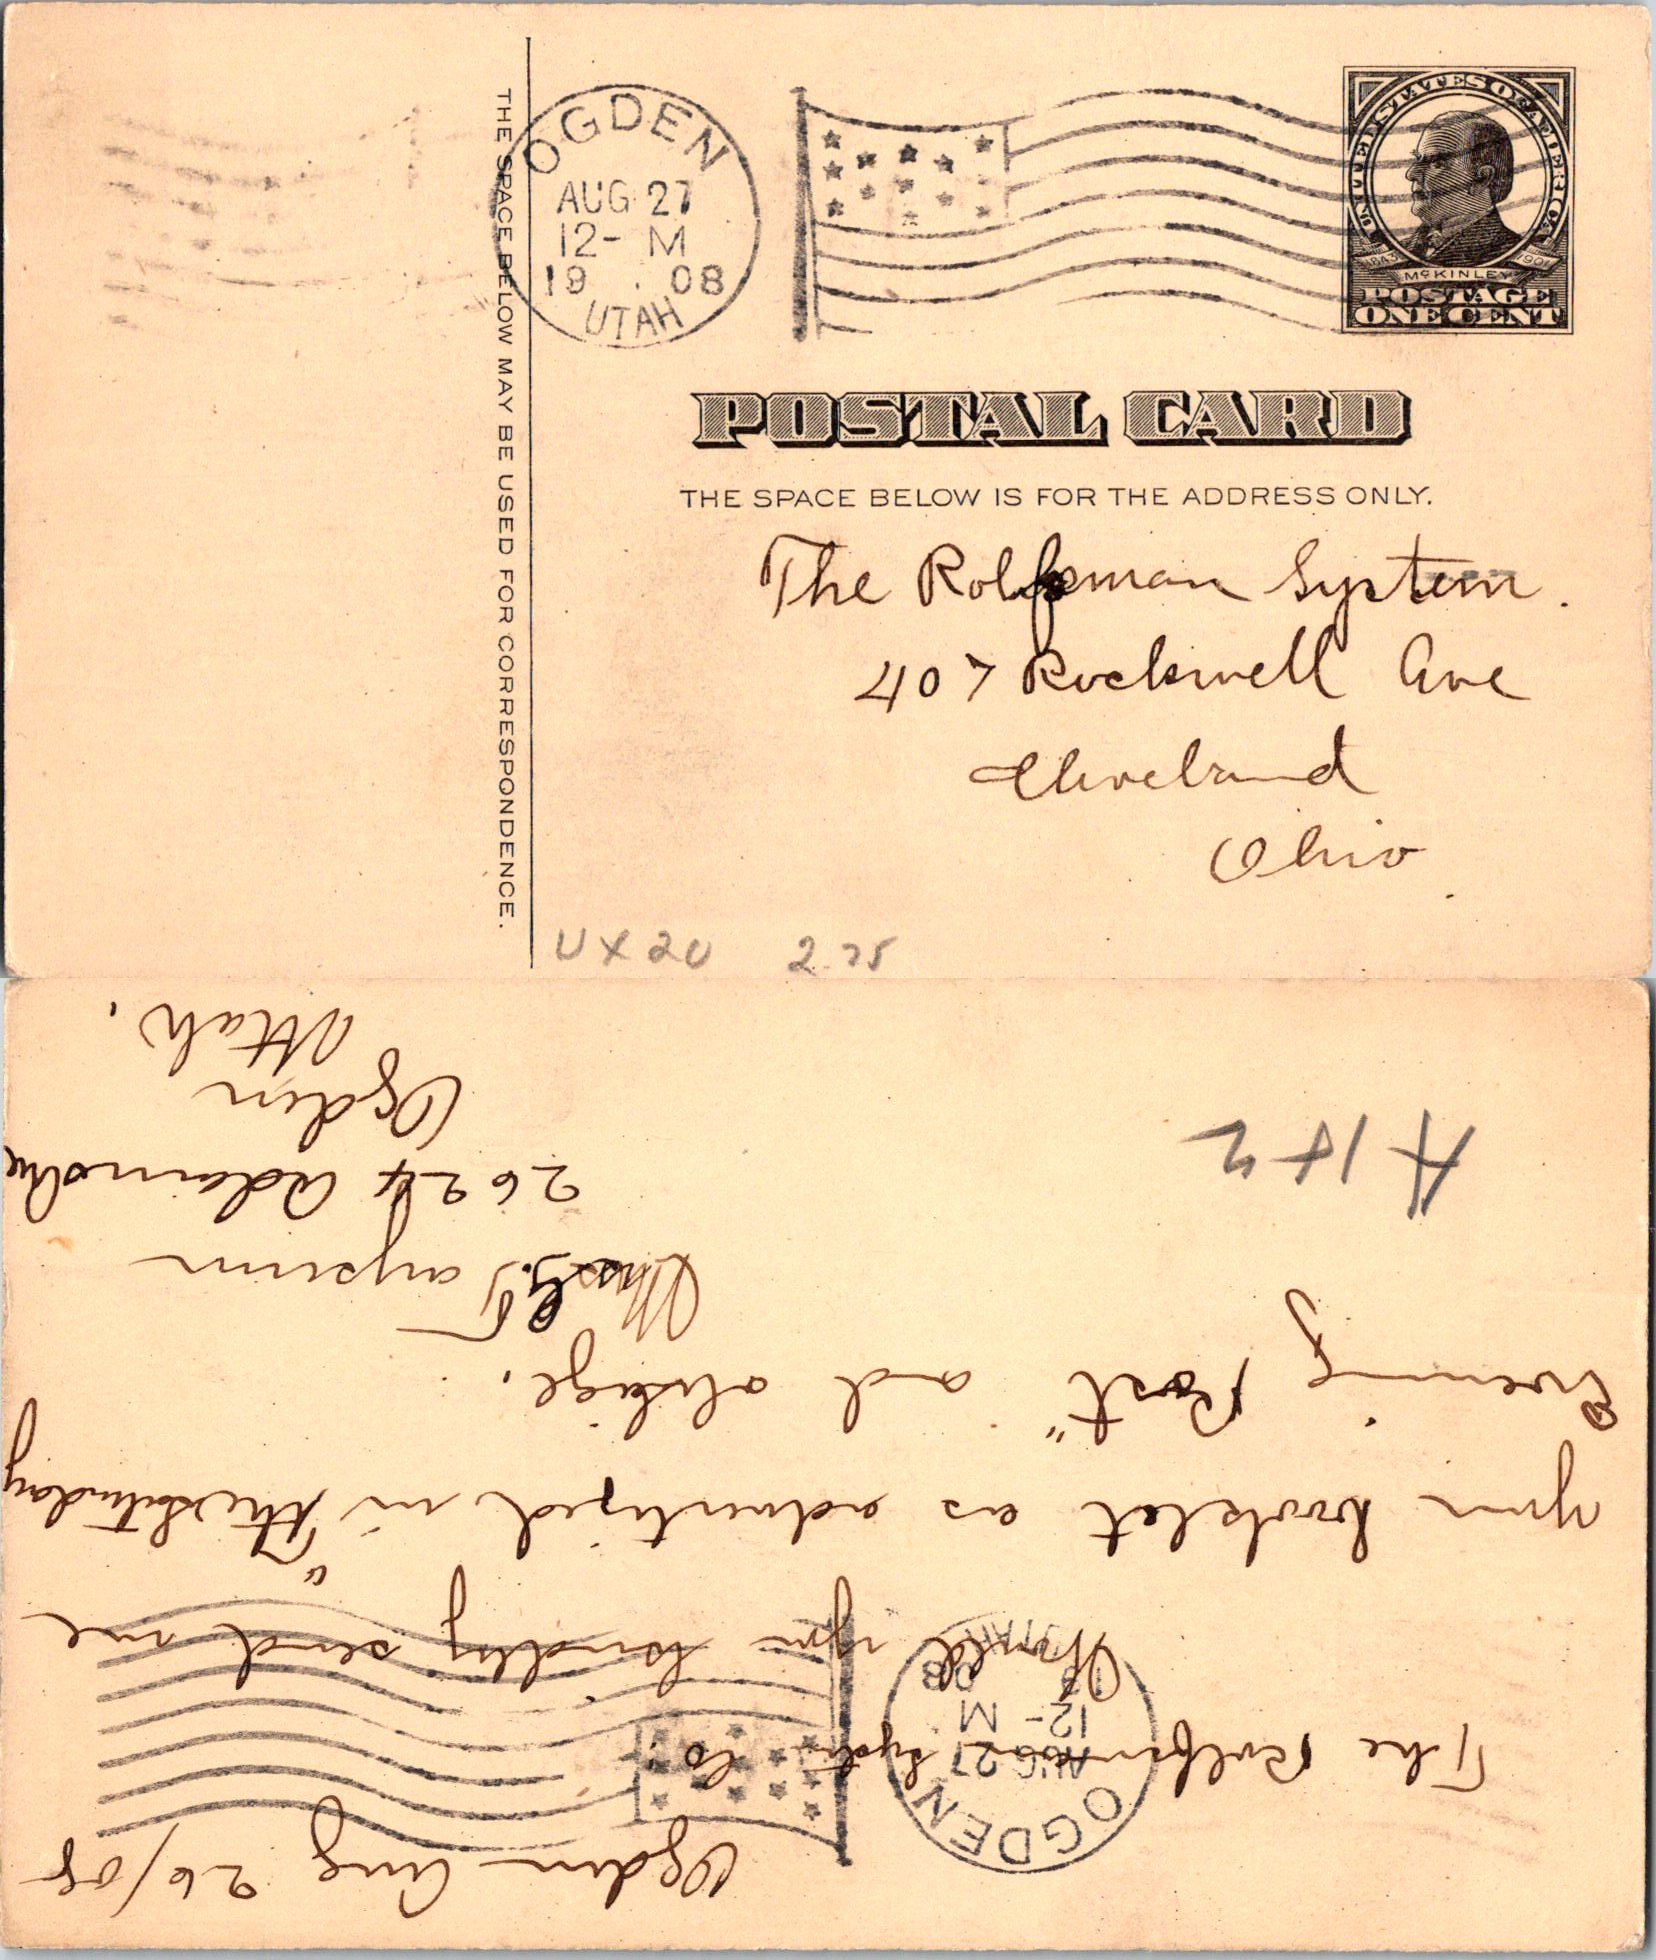 OGDEN
AUG 27
12- M
19 08
UTAH
UNITED STATES OF AMERICA
1843 McKINLEY 1901
POSTAGE
ONE CENT
THE SPACE BELOW MAY BE USED FOR CORRESPONDENCE.
POSTAL CARD
THE SPACE BELOW IS FOR THE ADDRESS ONLY.
The System.
407 Rockwell Ave
Cleveland
Ohio
UX20 2.75
Ogden Aug 26/08
The System Co.
Would you kindly send me
your booklet as advertized in "The Saturday
Evening Post" and oblige.
2624 Adams Ave
Ogden
Utah.
OGDEN
AUG 27
12- M
19 08
UTAH